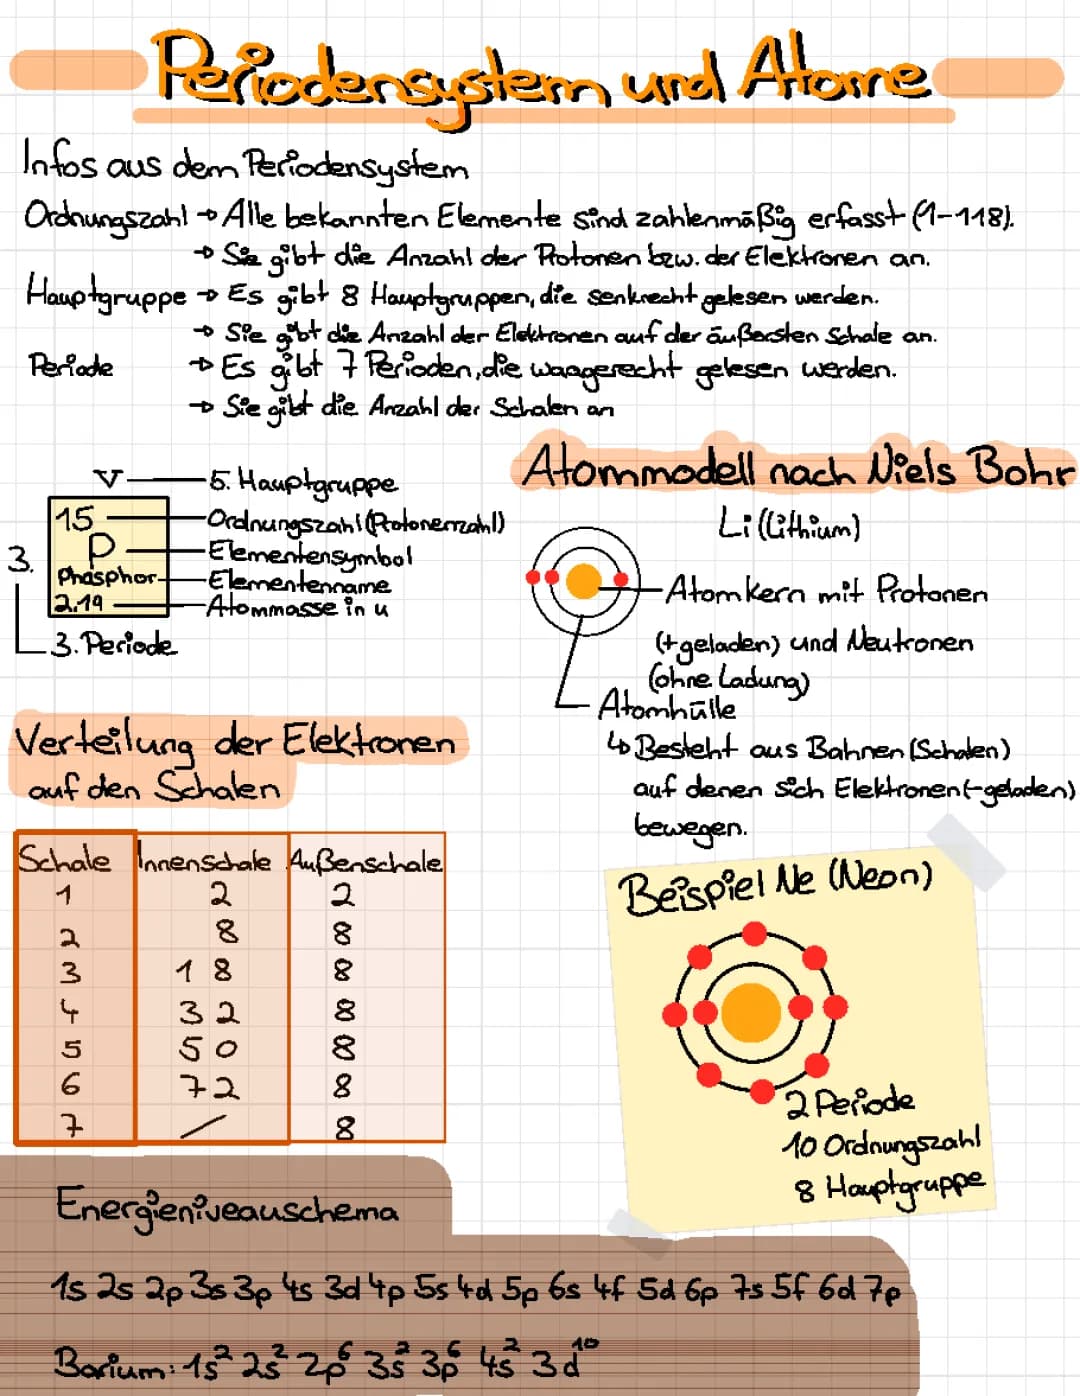 Periodensystem und Atome
Infos aus dem Periodensystem
Ordnungszahl → Alle bekannten Elemente sind zahlenmäßig erfasst (1-118).
→ Sie gibt die Anzahl der Protonen bzw. der Elektronen an.
Hauptgruppe → Es gibt 8 Hauptgruppen, die senkrecht gelesen werden.
→ Sie gibt die Anzahl der Elektronen auf der äußersten Schale an.
Periode → Es gibt 7 Perioden, die waagerecht gelesen werden.
→ Sie gibt die Anzahl der Schalen an
V 5. Hauptgruppe
15 Ordnungszahl (Protonenzahl)
3. P Elementensymbol
Phosphor Elementenname
2,19 Atommasse in u
3. Periode
Atommodell nach Niels Bohr
Li (Lithium)
Atomkern mit Protonen
(+geladen) und Neutronen
(ohne Ladung)
Atomhülle
↳ Besteht aus Bahnen (Schalen)
auf denen sich Elektronen (-geladen)
bewegen.
Verteilung der Elektronen
auf den Schalen
Schale Innenschale Außenschale
1 2 2
2 8 8
3 18 8
4 32 8
5 50 8
6 72 8
7 / 8
Beispiel Ne (Neon)
2 Periode
10 Ordnungszahl
8 Hauptgruppe
Energieniveauschema
1s 2s 2p 3s 3p 4s 3d 4p 5s 4d 5p 6s 4f 5d 6p 7s 5f 6d 7p
Barium: 1s² 2s² 2p⁶ 3s² 3p⁶ 4s² 3d¹⁰